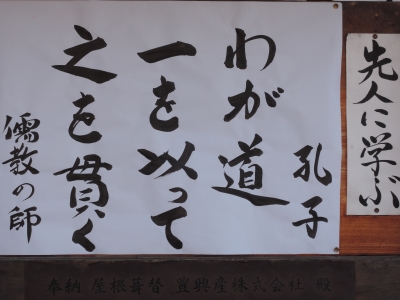 先人に学ぶ
孔子
わが道
一を以って
之を貫く
儒教の師
奉納 屋根葺替 置興産株式会社 殿